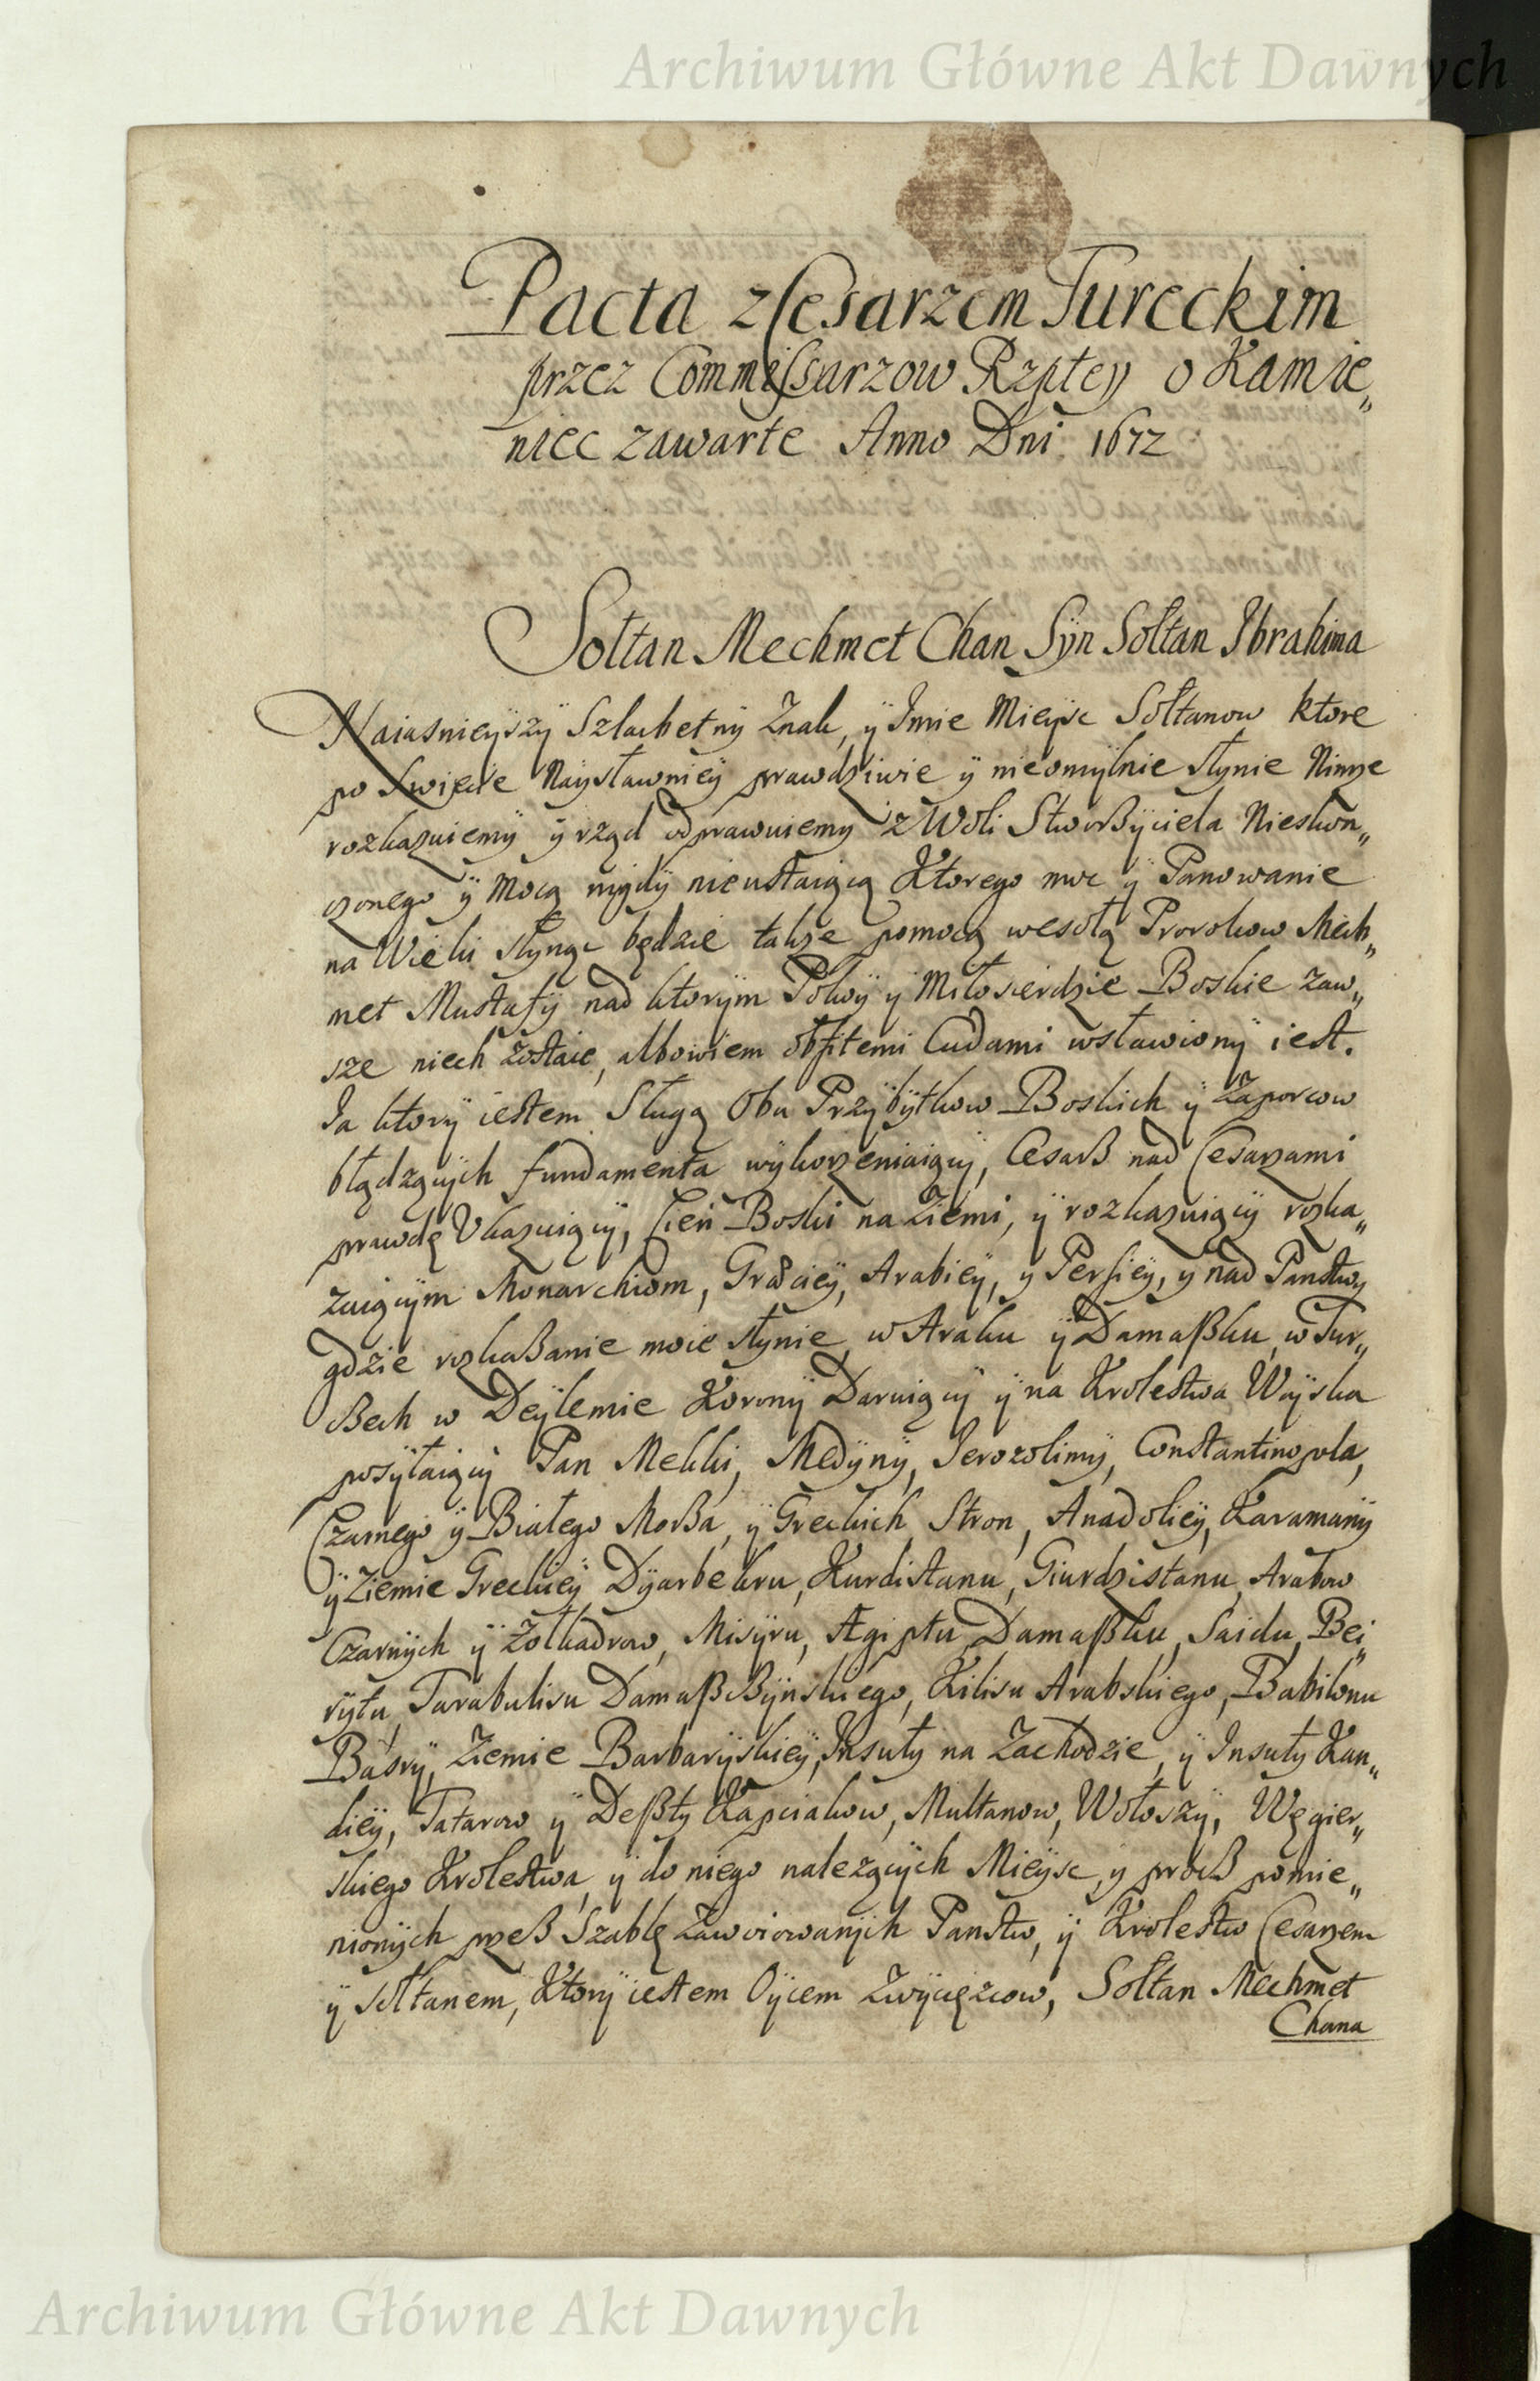 Archiwum Główne Akt Dawnych
Pacta z Cesarzem Tureckim
przez Commissarzow Rzptey o Kamie„
niec zawarte Anno Dni 1672
Sołtan Mechmet Chan Syn Sołtan Ibrahima
Naiasnieÿszÿ Szlachetnÿ Znak, ÿ Imie Mieÿsc Sołtanow ktore
po Swiecie Naÿsławnieÿ prawdziwie ÿ nieomÿlnie słynie Ninze
rozkazuiemÿ ÿ rząd odprawuiemy z Woli Stworßÿciela Nieskon„
czonego ÿ Mocą nigdÿ nieustaiącą Ktorego moc ÿ Panowanie
na Wieki słynąc będzie także pomocą wesołą Prorokow Mech„
met Mustafÿ nad ktorÿm Pokoÿ ÿ Miłosierdzie Boskie zaw„
sze niech zostaie, albowiem obfitemi Cudami wsławionÿ iest.
Ja ktorÿ iestem Sługą Obu Przÿbÿtkow Boskich ÿ Zaporcow
błądzącÿch fundamenta wÿkorzeniaiącÿ, Cesarß nad Cesarzami
prawdę Ukazuiącÿ, Cień Boski na Ziemi, ÿ rozkazuiącÿ rozka„
zuiącÿm Monarchiom, Græcieÿ, Arabieÿ, y Persieÿ, y nad Panstwy
gdzie rozkaßanie moie słynie w Araku ÿ Damaßku, w Tur„
ßech w Deÿlemie Koronÿ Daruiącÿ ÿ na Krolestwa Woÿska
posÿłaiącÿ Pan Mekki, Medÿnÿ, Jerozolimÿ, Constantinopola,
Czarnego ÿ Białego Morßa, ÿ Greckich Stron, Anadolieÿ, Karamanÿ
ÿ Ziemie Greckieÿ Dÿarbekru, Kurdistanu, Giurdzistanu, Arabow
Czarnÿch ÿ Zołkadrow, Misÿru, Ægiptu, Damaßku, Saidu, Bei„
rÿtu, Tarabulisu Damaßßÿnskiego, Kilisu Arabskiego, Babilonu
Basrÿ, Ziemie Barbarÿskieÿ, Insuły na Zachodzie, ÿ Insuły Kan„
dieÿ, Tatarow ÿ Deßty Kapciakow, Multanow, Wołoszÿ, Węgier„
skiego Krolestwa, ÿ do niego nalezącÿch Mieÿsc, y procß pomie„
nionÿch przeß Szablę Zawoiowanÿch Panstw, ÿ Krolestw Cesarzem
ÿ Sołtanem, Ktorÿ iestem Oÿcem Zwÿciężcow, Sołtan Mechmet
Chana
Archiwum Główne Akt Dawnych